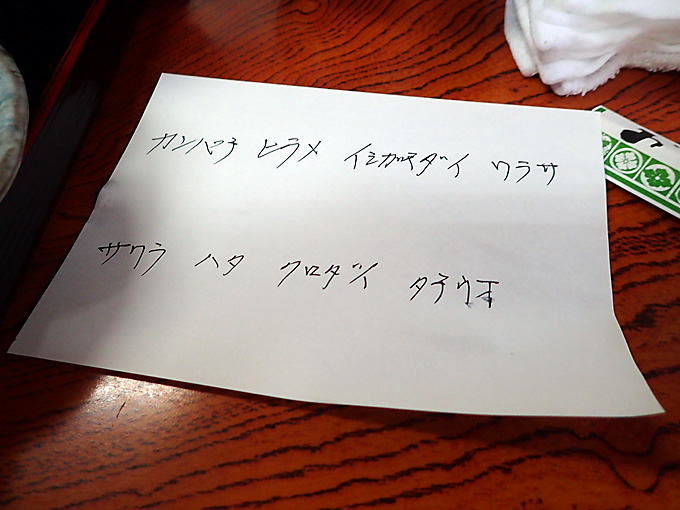 カンパチ ヒラメ イシガキダイ ワラサ
サワラ ハタ クロダイ タチウオ